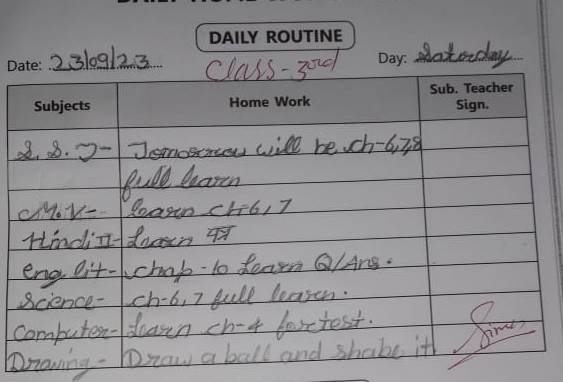 DAILY ROUTINE
Date: 23/09/23 Class - 3rd Day: Saterday
Subjects Home Work Sub. Teacher Sign.
S. S. T- Tomorrow will be ch-6,7,8
full learn
M.V- learn ch-6,7
Hindi II- Learn
Eng lit- chap-10 Learn Q/Ans.
Science- ch-6,7 full learn.
Computer- Learn ch-4 for test.
Drawing- Draw a ball and shabe it